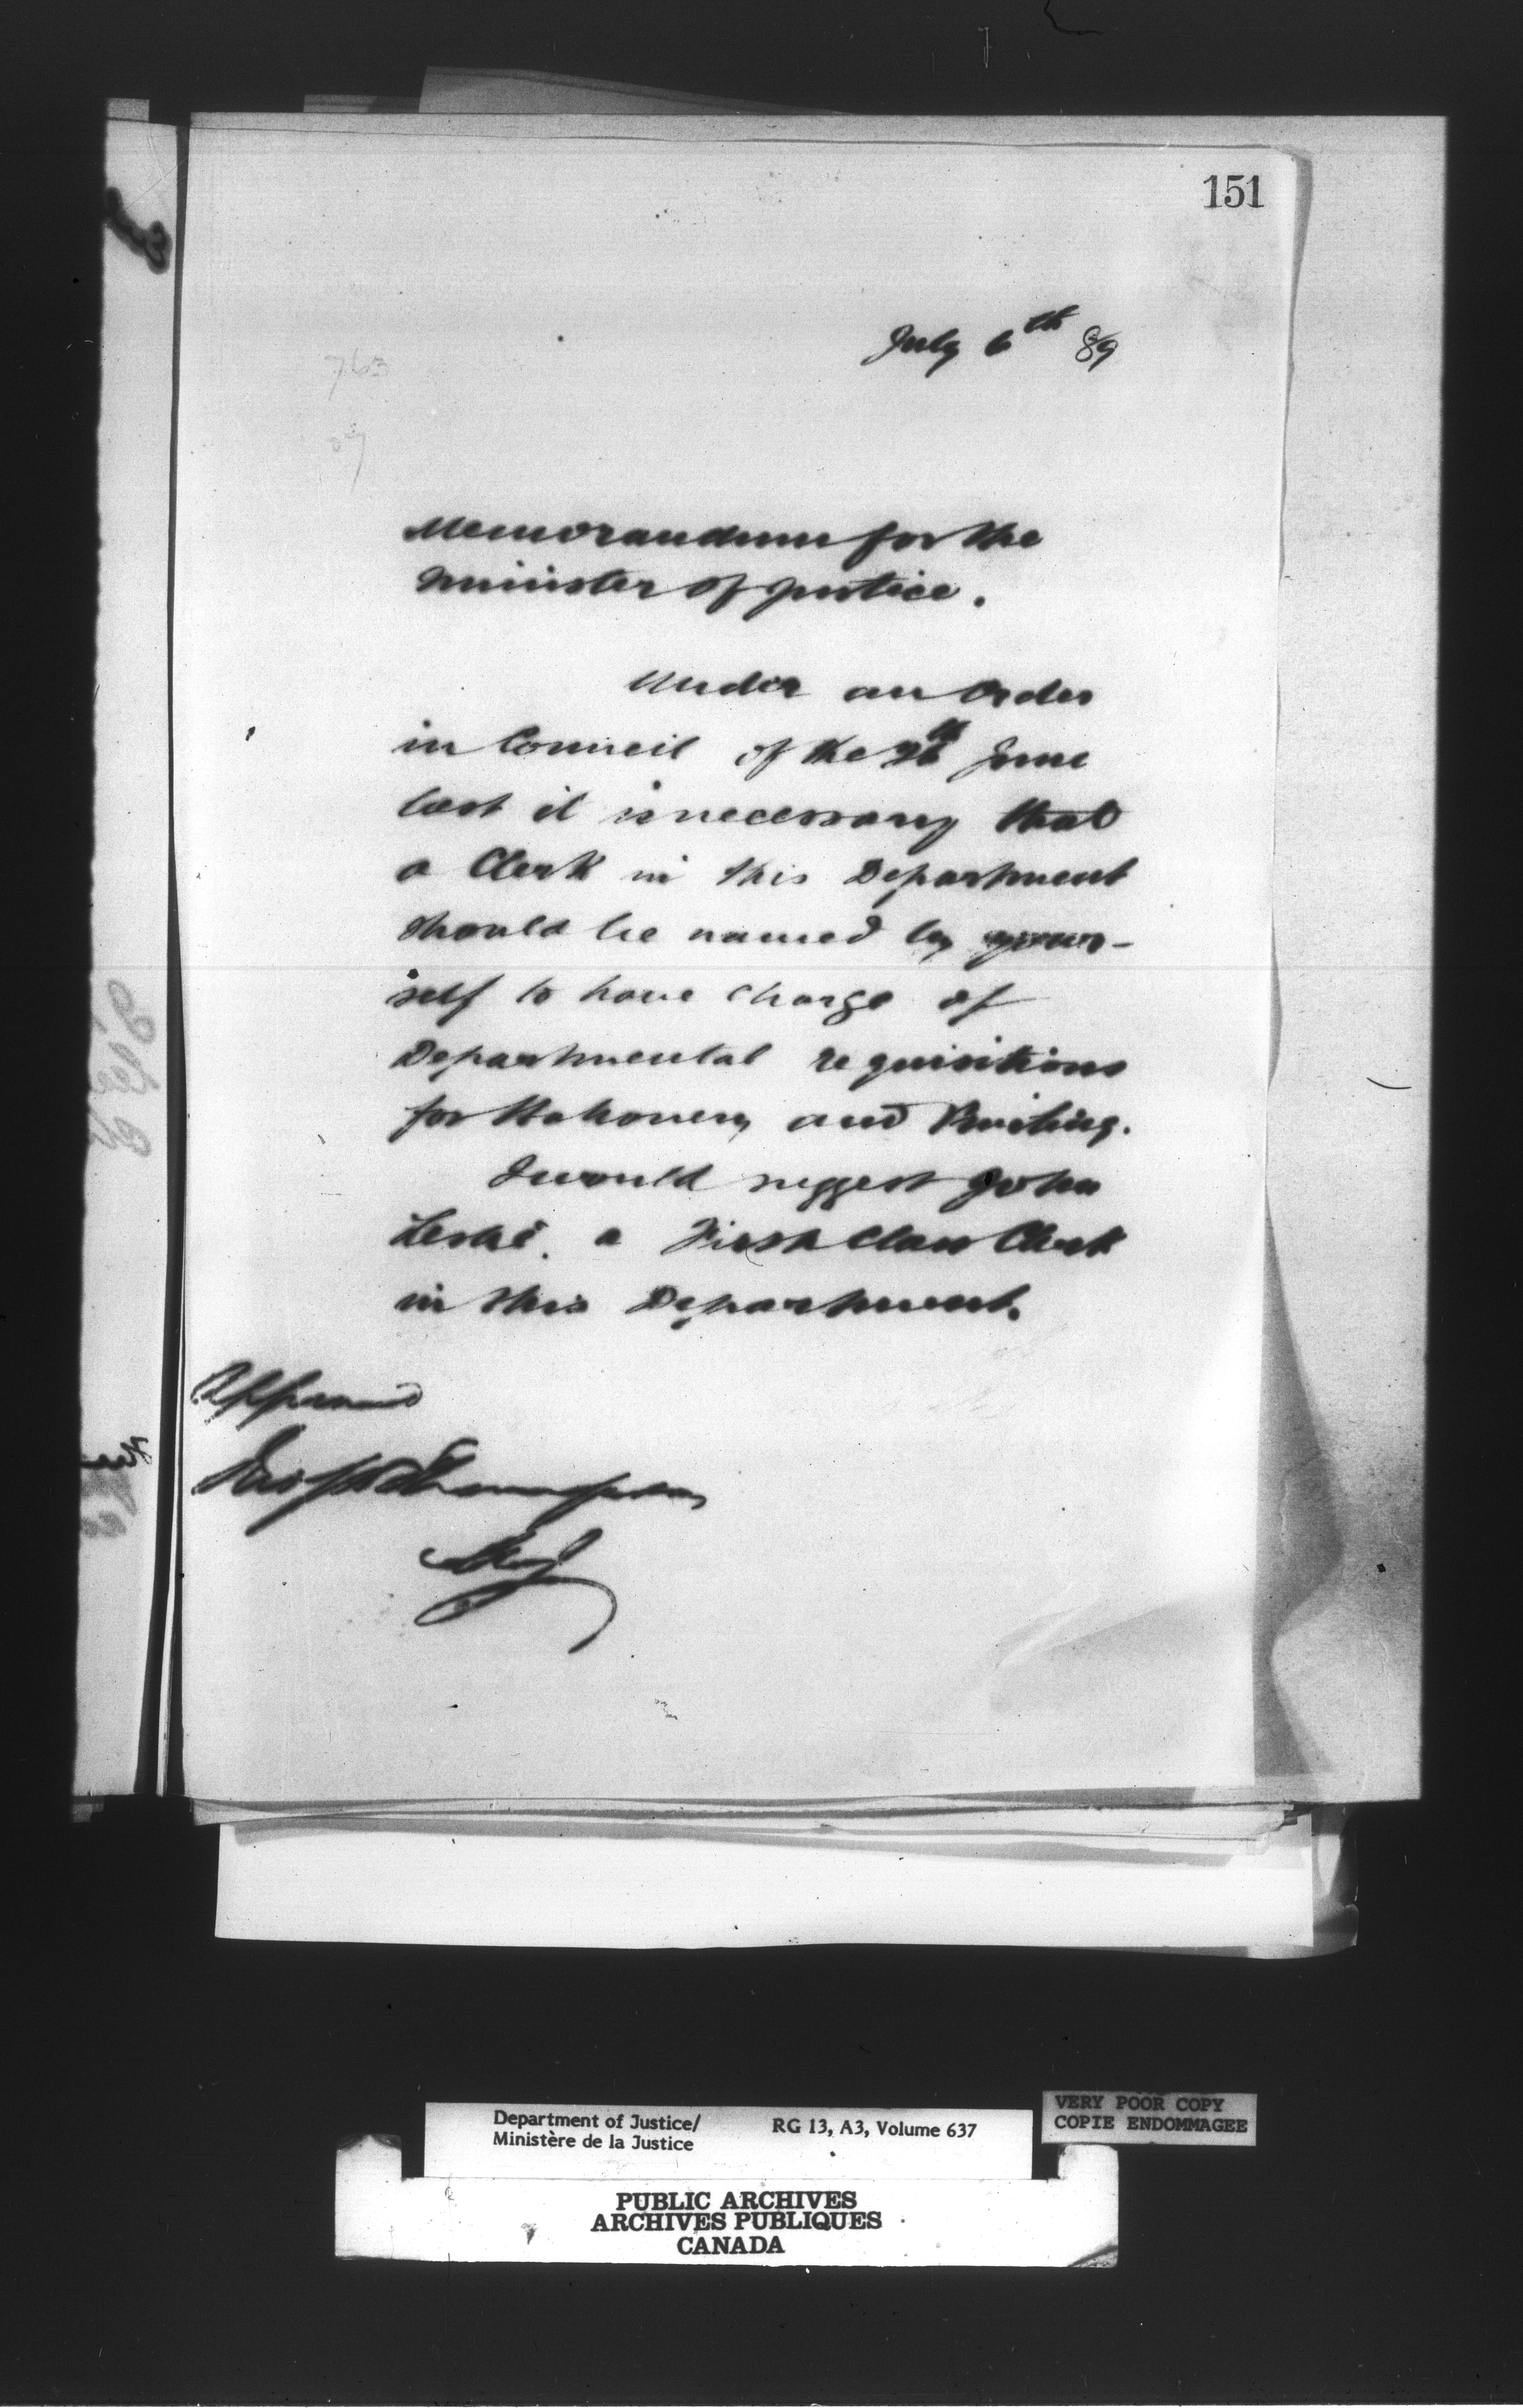 151
July 6th 89
763
Memorandum for the
Minister of Justice.
Under an Order
in Council of the 26th June
last it is necessary that
a Clerk in this Department
should be named by your-
self to have charge of
Departmental requisitions
for Stationery and Printing.
I would suggest John
Leslie, a First Class Clerk
in this Department.
Approved
Jno S D Thompson
MoJ
Department of Justice/
Ministère de la Justice
RG 13, A3, Volume 637
VERY POOR COPY
COPIE ENDOMMAGEE
PUBLIC ARCHIVES
ARCHIVES PUBLIQUES
CANADA